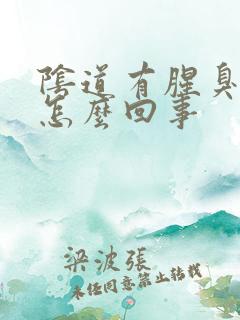 陰道有腥臭
怎麼回事
梁波張
未經同意禁止轉載